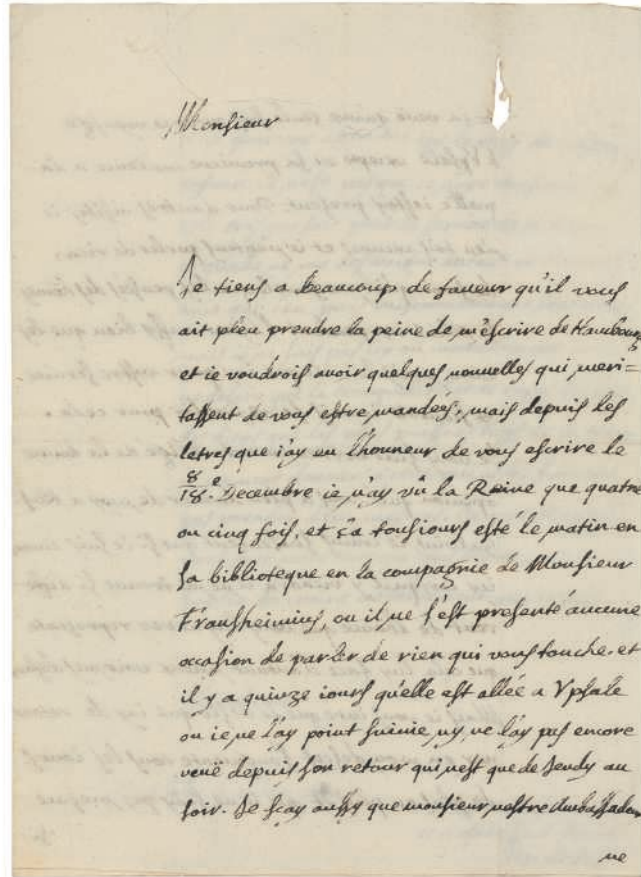 Monsieur
Je tiens a beaucoup de faueur qu'il vous
ait pleu prendre la peine de m'escrire de Hambourg
et ie voudrois auoir quelques nouuelles qui meri=
tassent de vous estre mandées, mais depuis les
letres que i'ay eu l'honneur de vous escrire le
8/18.e Decembre ie n'ay vû la Reine que quatre
ou cinq fois, et ç'a tousiours esté le matin en
sa biblioteque en la compagnie de Monsieur
Fransheimius, ou il ne s'est presenté aucune
occasion de parler de rien qui vous touche. et
il y a quinze iours qu'elle est allée a Vpsale
ou ie ne l'ay point suiuie, ny ne l'ay pas encore
veuë depuis son retour qui n'est que de Jeudy au
soir. Je sçay aussy que monsieur nostre Ambassadeur
ne